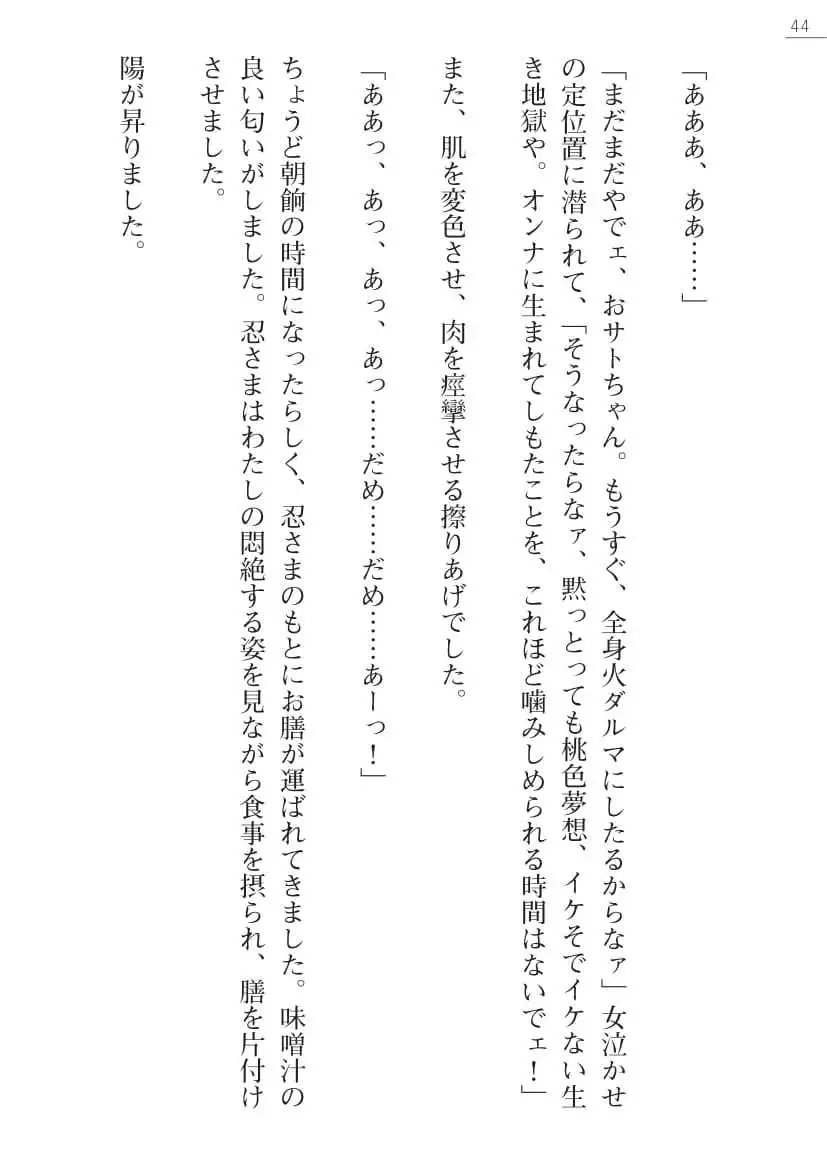 44
「あああ、ああ……」
「まだまだやでェ、おサトちゃん。もうすぐ、全身火ダルマにしたるからなァ」女泣かせ
の定位置に潜られて、「そうなったらなァ、黙っとっても桃色夢想、イケそでイケない生
き地獄や。オンナに生まれてしもたことを、これほど噛みしめられる時間はないでェ！」
また、肌を変色させ、肉を痙攣させる擦りあげでした。
「ああっ、あっ、あっ、あっ……だめ……だめ……あーっ！」
ちょうど朝餉の時間になったらしく、忍さまのもとにお膳が運ばれてきました。味噌汁の
良い匂いがしました。忍さまはわたしの悶絶する姿を見ながら食事を摂られ、膳を片付け
させました。
陽が昇りました。